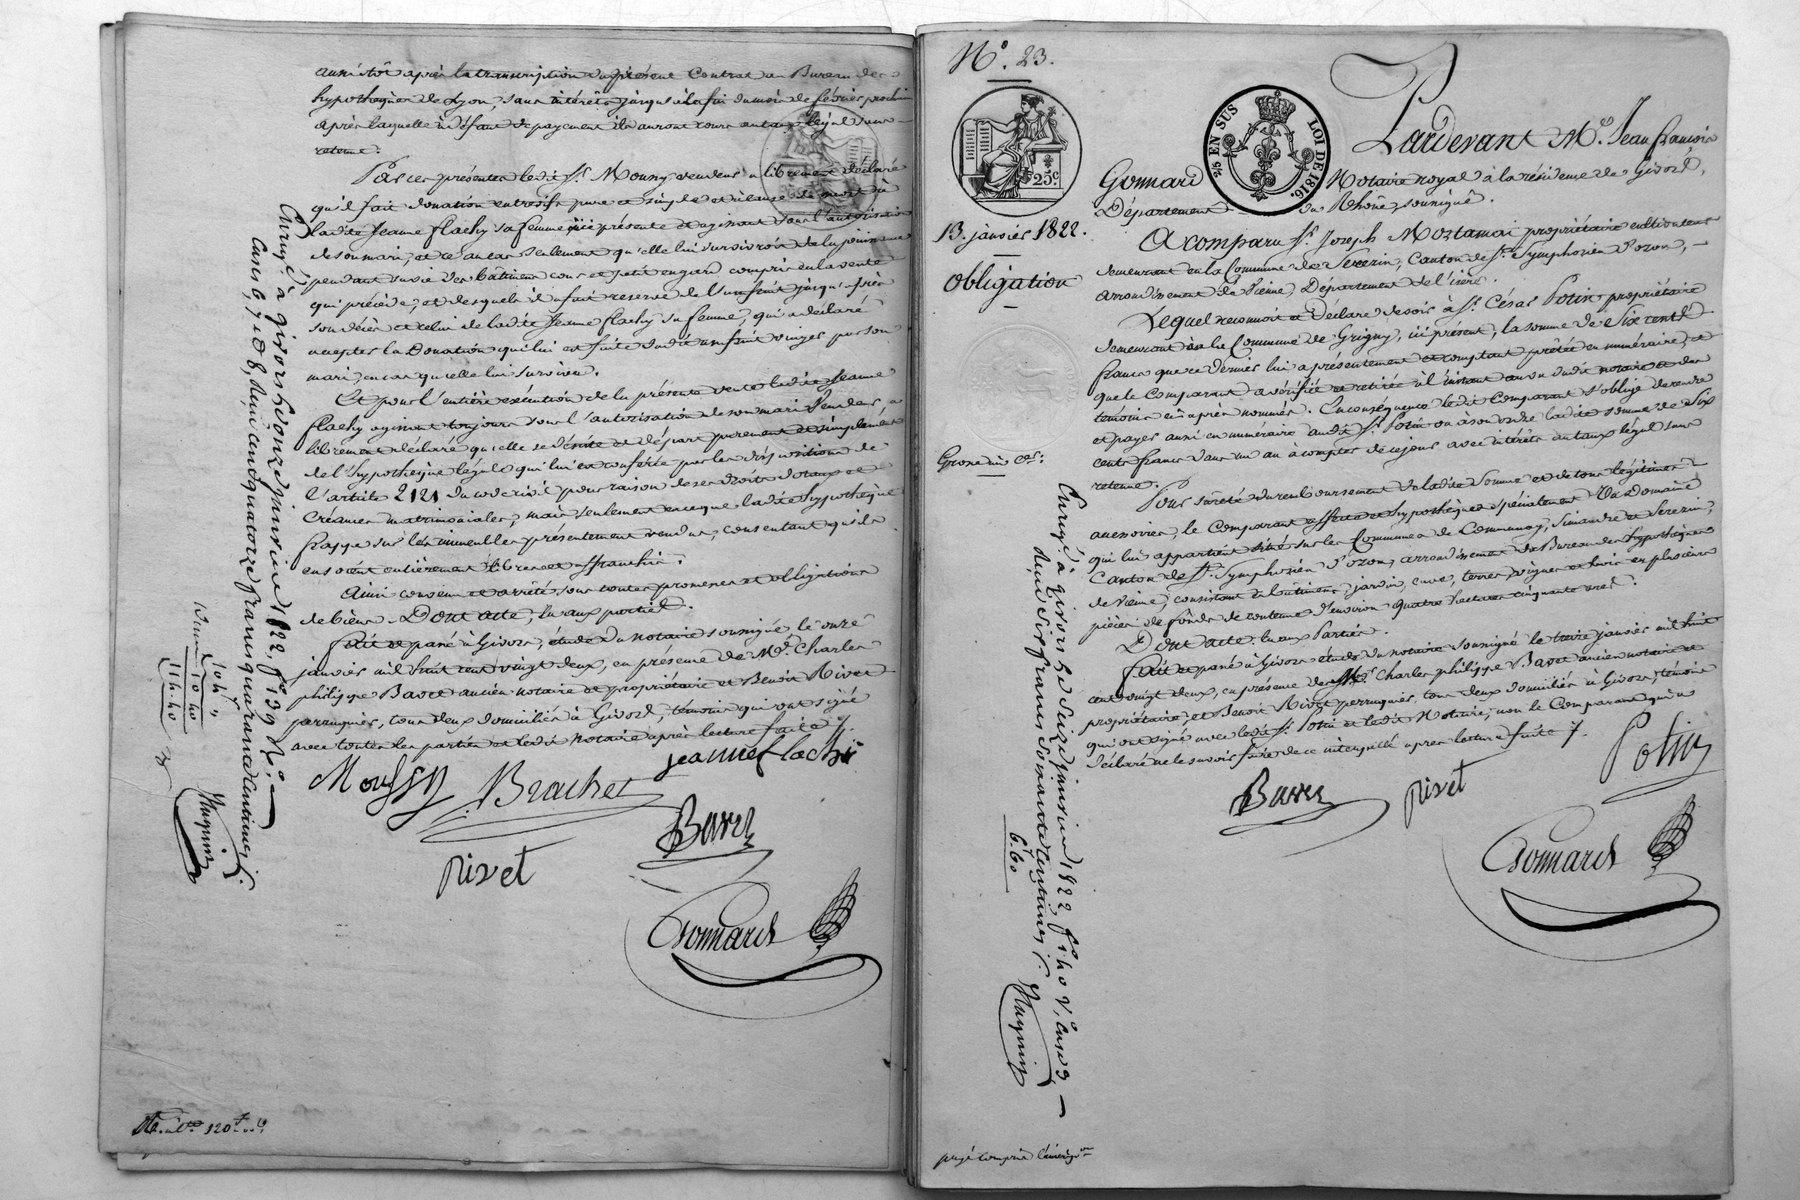 aussitôt après la transcription du présent Contrat au Bureau des
hypothèques de Lyon, sans intérêts jusqu'à la fin du mois de février prochain
après laquelle à défaut de payement ils auront cours au taux légal sans
retenue.
Par ces présentes ledit Sr. Moussy vendeur a librement déclaré
qu'il fait donation entrevifs pure et simple et à cause de mort à
ladite Jeanne flachy sa femme ici présente et agissant sous l'autorisation
de son mari, et ce au cas seulement qu'elle lui survivroit de la jouissance
pendant sa vie des bâtiment cour et petit engard compris en la vente
qui précède, et desquels il s'est fait reserve de l'usufruit jusqu'après
son décès et celui de ladite Jeanne flachy sa femme, qui a déclaré
accepter la Donation qui lui est faite dudit usufruit viager par son
mari, en cas qu'elle lui survive.
Et pour l'entière exécution de la présente vente ladite Jeanne
flachy agissant toujours sous l'autorisation de son mari Vendeur, a
librement déclaré qu'elle se désiste et départ purement et simplement
de l'hypothèque légale qui lui est conférée par les dispositions de
l'article 2121 du code civil pour raison de ses droits dotaux et
Créances matrimoniales, mais seulement en ce que ladite hypothèque
frappe sur les immeubles présentement vendus, consentant qu'ils
en soient entièrement libres et affranchis.
Ainsi convenu et arrêté, sous toutes promesses et obligations
de biens. Dont acte, lu aux parties.
fait et passé à Givors, étude du notaire soussigné le onze
janvier mil huit cent vingt deux, en présence de Mr. Charles
philippe Baver ancien notaire et propriétaire et Benoît Rivet
perruquier, tous deux domiciliés à Givors, témoins qui ont signé
avec toutes les parties et ledit Notaire après lecture faite
Moussy Brachet jeanne flachi
Baver
rivet
Gonnard
Enregé. à givors le onze janvier 1822, fo. 139 Ro.
cases 6, 7 et 8, reçu cent quatorze francs quarante centimes
104 "
10 40
114 40
N°. 23.
25c
2/5 EN SUS LOI DE 1816.
13. janvier 1822.
Obligation
Grosse
Pardevant Me. Jean françois
Gonnard Notaire royal à la résidence de Givors,
Département du Rhône, soussigné.
A comparu Sr. Joseph Mortamai propriétaire cultivateur
demeurant en la Commune de Serezin, Canton de St. Symphorien d'ozon,
arrondissement de Vienne, Département de l'isère.
Lequel reconnoit et Déclare devoir à Sr. César Potin propriétaire
demeurant en la Commune de Grigny, ici présent, la somme de Six cents
francs que ce dernier lui a présentement et comptant prêtée en numéraire, et
que le Comparant a vérifiée et retirée à l'instant au vu dudit notaire et des
témoins ci après nommés. En conséquence ledit Comparant s'oblige de rendre
et payer aussi en numéraire audit Sr. Potin ou à son ordre ladite somme de Six
cents francs dans un an à compter de ce jour avec intérêts au taux légal sans
retenue.
Pour sûreté du remboursement de ladite Somme et de tous légitimes
accessoires, le Comparant affecte et hypothèque spécialement Un domaine
qui lui appartient situé sur les Communes de Communay, Simandre et Serezin,
Canton de St. Symphorien d'ozon, arrondissement du Bureau des hypothèques
de Vienne, consistant en bâtiment, jardin, cuve, terres, vignes et bois en plusieurs
pièces de fonds de contenue d'environ quatre hectares cinquante ares.
Dont acte, lu aux Parties.
fait et passé à Givors étude du notaire soussigné le treize janvier mil huit
cent vingt deux, en présence de Mr. Charles philippe Baver ancien notaire et
propriétaire, et Benoît Rivet perruquier, tous deux domiciliés à Givors, témoins
qui ont signé avec ledit Sr. Potin et ledit Notaire, non le Comparant qui a
déclaré ne le savoir faire de ce interpellé après lecture faite
Potin
Baver rivet
Gonnard
Enregé. à givors le seize janvier 1822, fo. 140 Vo. case 3
reçu six francs soixante centimes
6.60